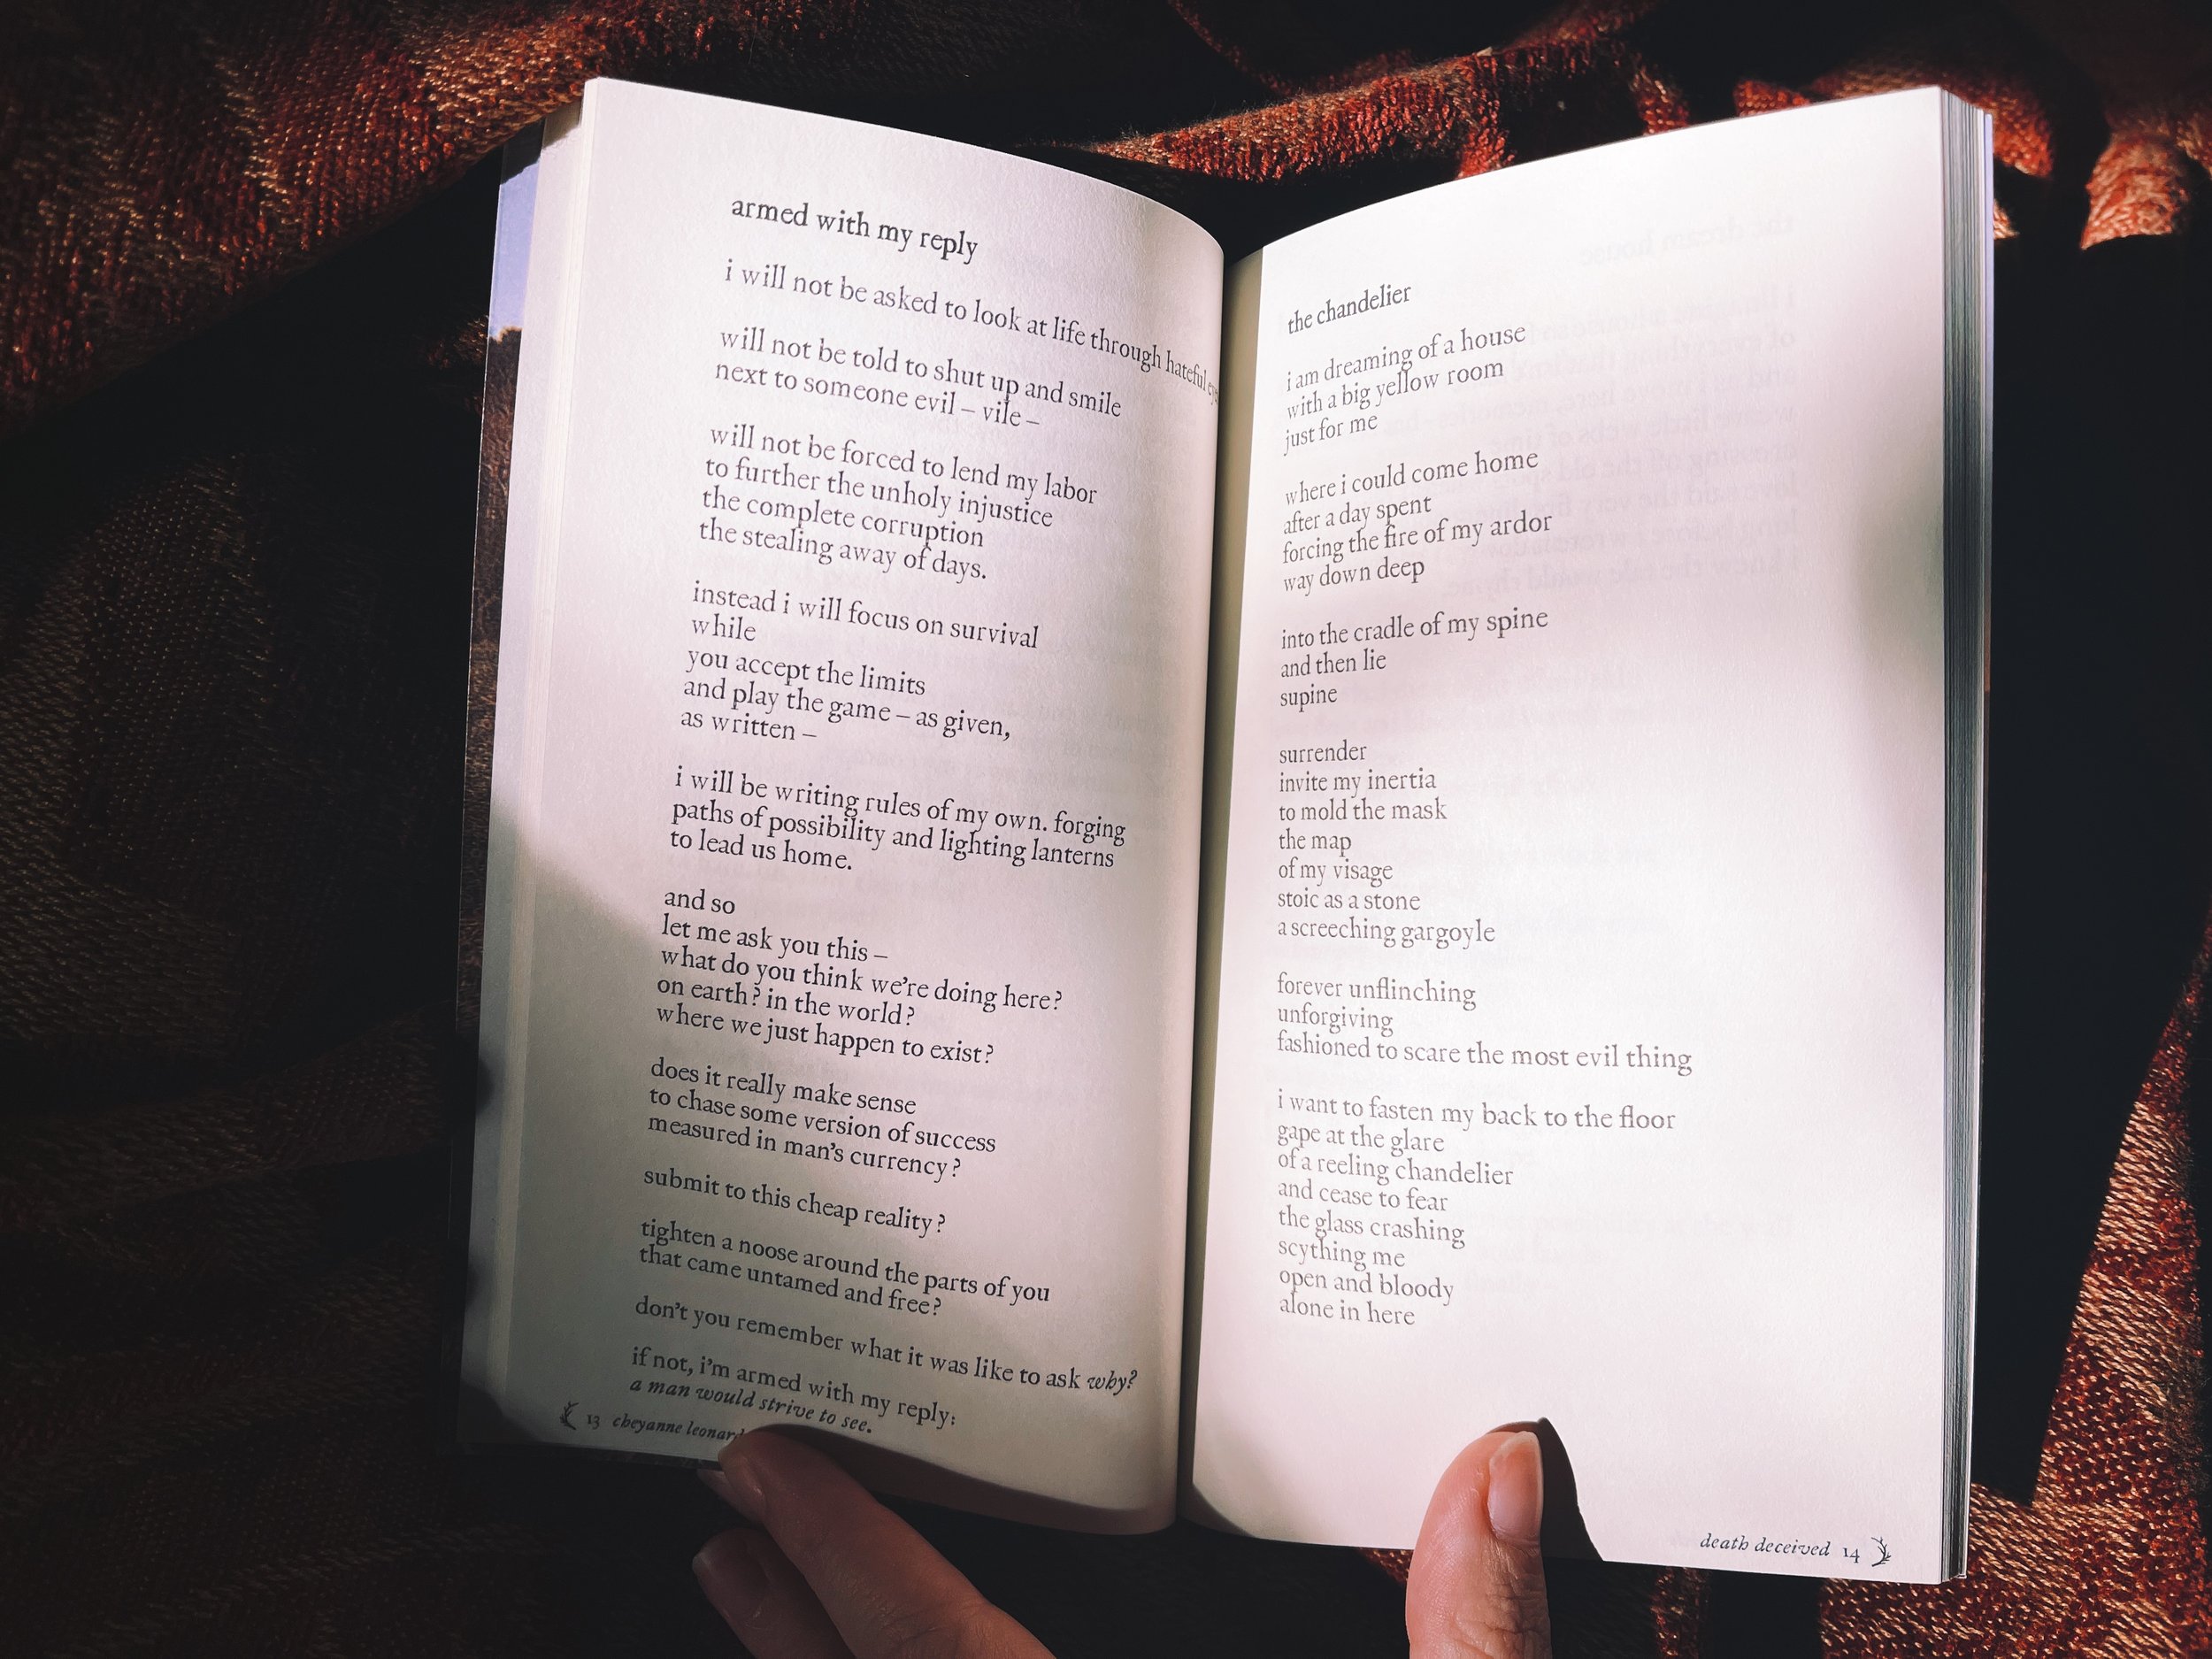 armed with my reply
i will not be asked to look at life through hateful
will not be told to shut up and smile
next to someone evil – vile –
will not be forced to lend my labor
to further the unholy injustice
the complete corruption
the stealing away of days.
instead i will focus on survival
while
you accept the limits
and play the game – as given,
as written –
i will be writing rules of my own. forging
paths of possibility and lighting lanterns
to lead us home.
and so
let me ask you this –
what do you think we're doing here?
on earth? in the world?
where we just happen to exist?
does it really make sense
to chase some version of success
measured in man's currency?
submit to this cheap reality?
tighten a noose around the parts of you
that came untamed and free?
don't you remember what it was like to ask why?
if not, i'm armed with my reply:
a man would strive to see.
13 cheyanne leonard
the chandelier
i am dreaming of a house
with a big yellow room
just for me
where i could come home
after a day spent
forcing the fire of my ardor
way down deep
into the cradle of my spine
and then lie
supine
surrender
invite my inertia
to mold the mask
the map
of my visage
stoic as a stone
a screeching gargoyle
forever unflinching
unforgiving
fashioned to scare the most evil thing
i want to fasten my back to the floor
gape at the glare
of a reeling chandelier
and cease to fear
the glass crashing
scything me
open and bloody
alone in here
death deceived 14